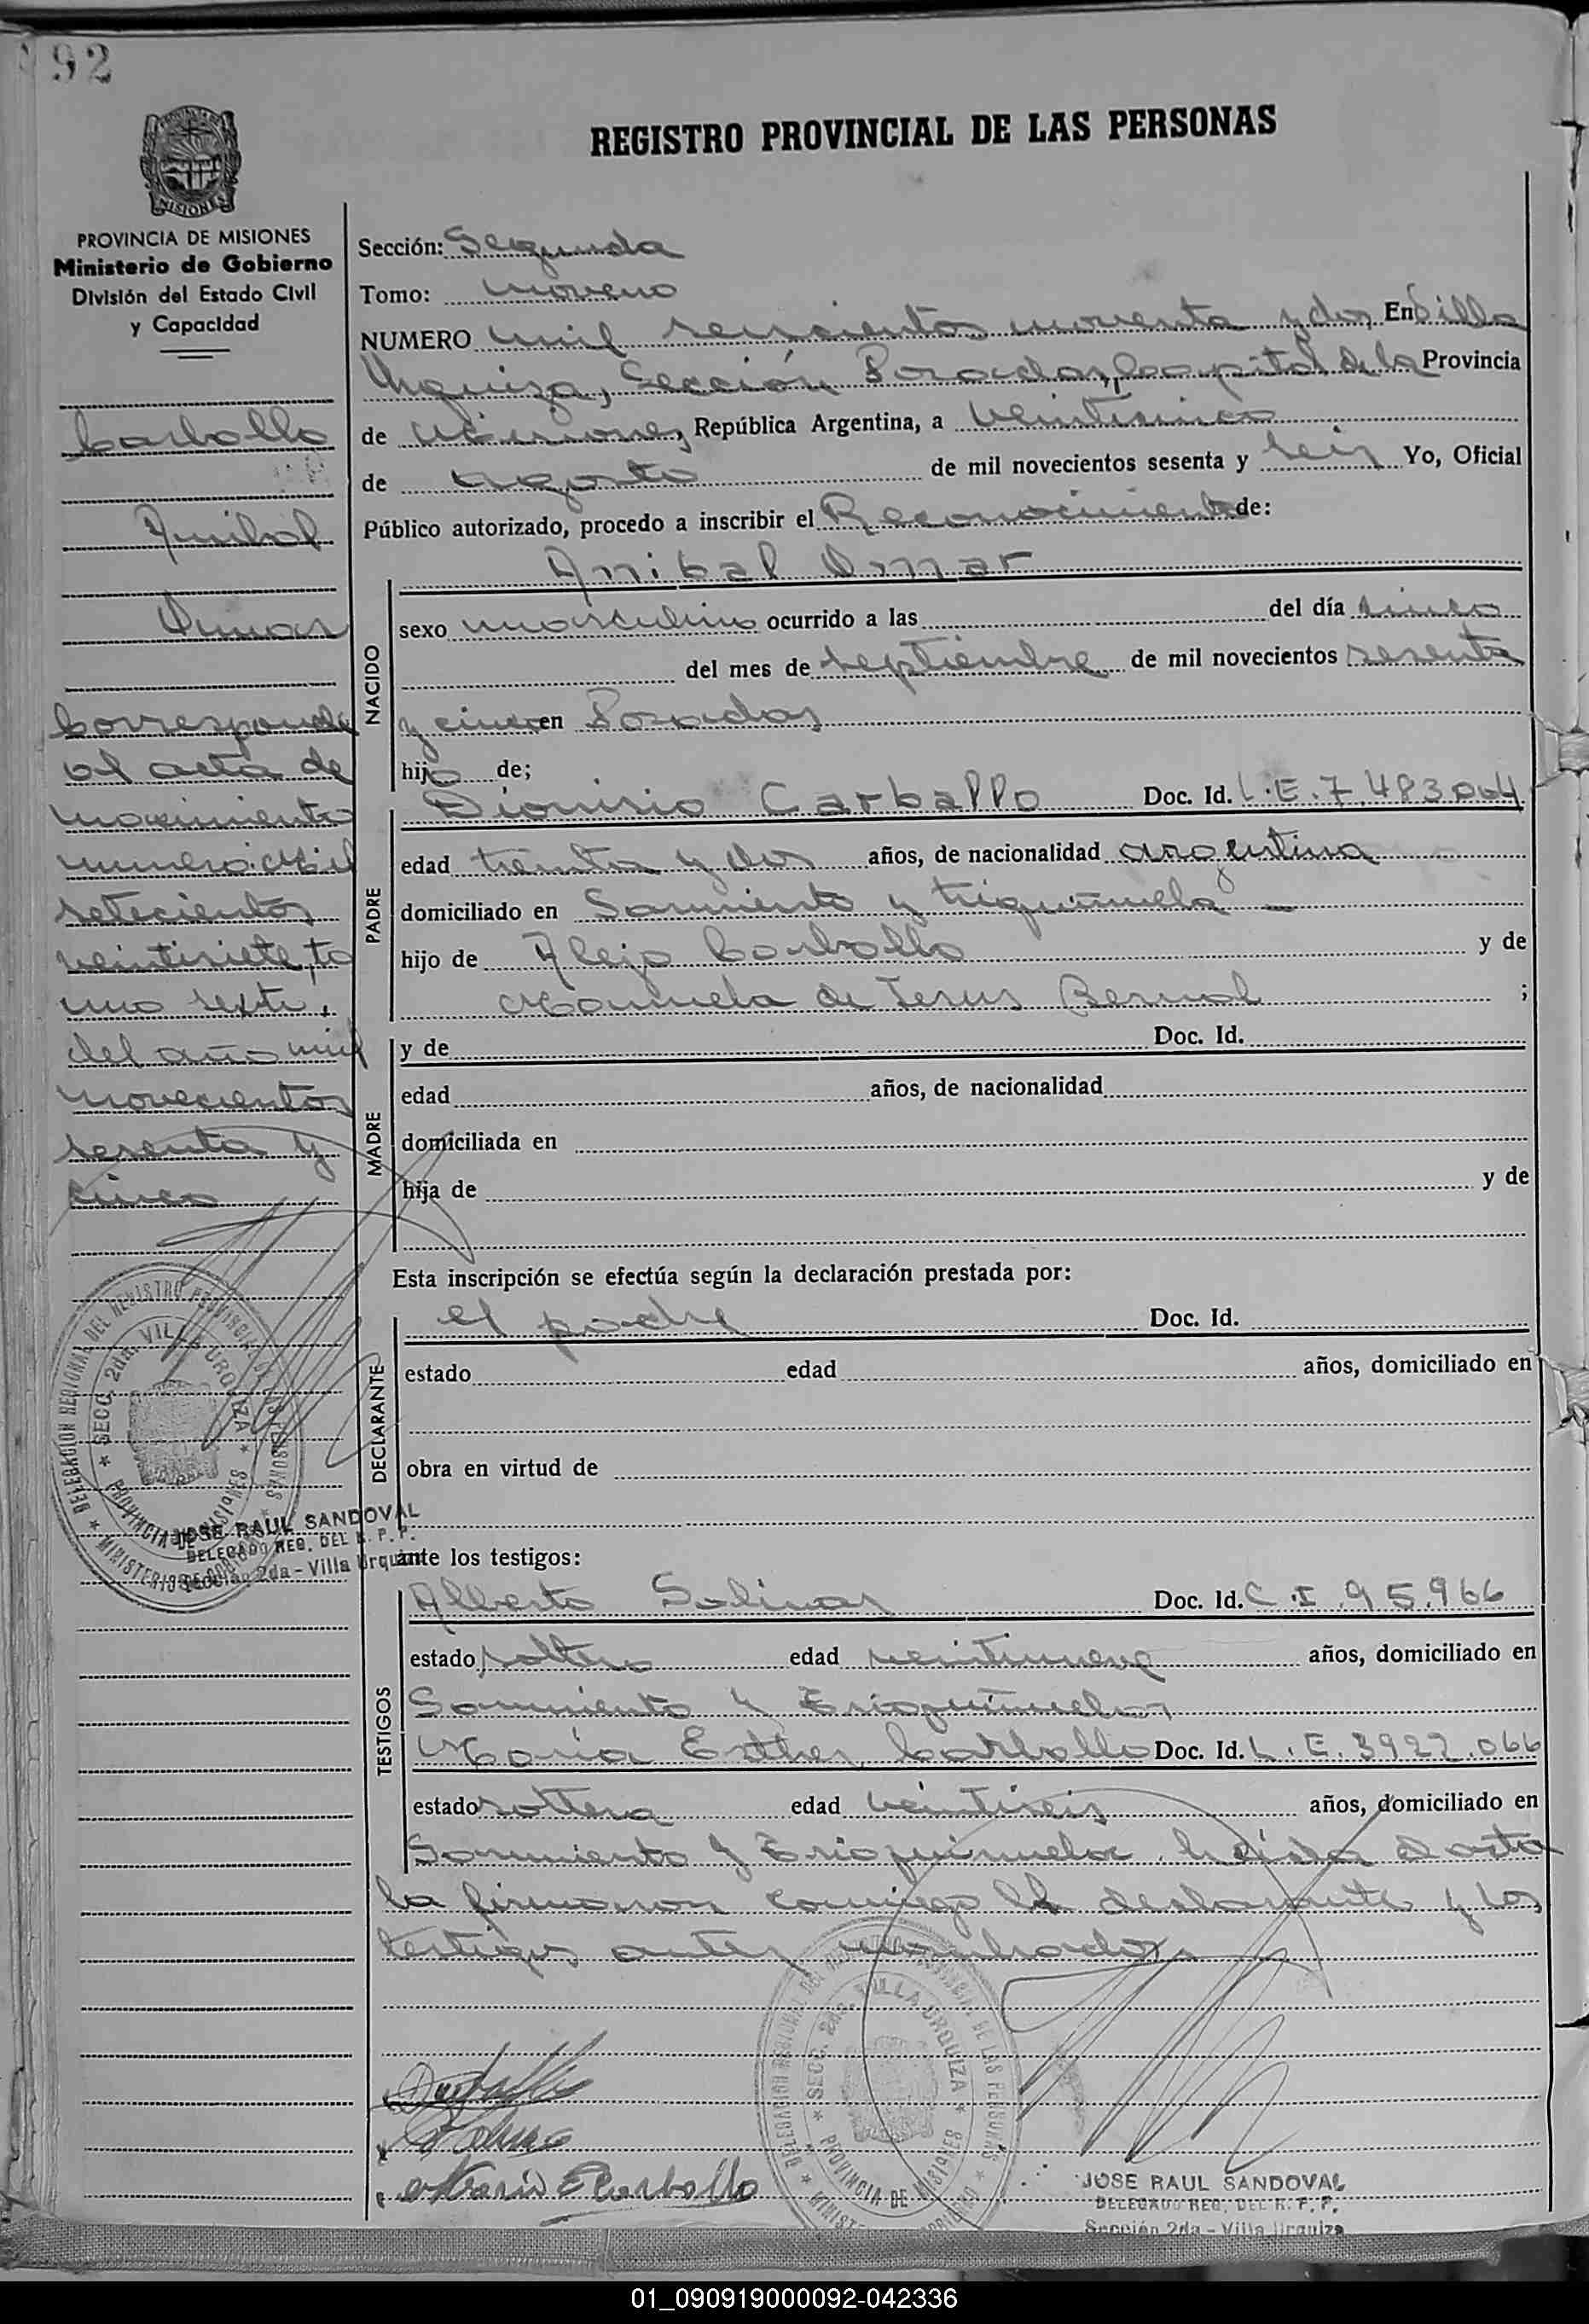 92
REGISTRO PROVINCIAL DE LAS PERSONAS
MISIONES
PROVINCIA DE MISIONES
Ministerio de Gobierno
División del Estado Civil
y Capacidad
Carballo
Anibal
Omar
Corresponde
al acta de
nacimiento
numero Mil
setecientos
veintisiete, to
mo sexto,
del año mil
novecientos
sesenta y
cinco
DELEGACION REGIONAL DEL REGISTRO PROVINCIAL DE LAS PERSONAS
SECC. 2da. VILLA URQUIZA
PROVINCIA DE MISIONES
JOSE RAUL SANDOVAL
DELEGADO REG. DEL R. P. P.
Sección 2da - Villa Urquiza
Sección: Segunda
Tomo: noveno
NUMERO mil seiscientos noventa y dos En Villa
Urquiza, Sección Posadas, Capital de la Provincia
de Misiones, República Argentina, a veinticinco
de agosto de mil novecientos sesenta y seis Yo, Oficial
Público autorizado, procedo a inscribir el Reconocimiento de:
Anibal Omar
NACIDO
sexo masculino ocurrido a las del día cinco
del mes de septiembre de mil novecientos sesenta
y cinco en Posadas
hijo de;
PADRE
Dionisio Carballo Doc. Id. L.E. 7.483.004
edad treinta y dos años, de nacionalidad argentina
domiciliado en Sarmiento y Triquiñuela
hijo de Alejo Carballo y de
Manuela de Jesus Bernal ;
MADRE
y de Doc. Id.
edad años, de nacionalidad
domiciliada en
hija de y de
Esta inscripción se efectúa según la declaración prestada por:
DECLARANTE
el padre Doc. Id.
estado edad años, domiciliado en
obra en virtud de
ante los testigos:
TESTIGOS
Alberto Salinas Doc. Id. C.I. 95.966
estado soltero edad veintinueve años, domiciliado en
Sarmiento y Triquiñuelas
Maria Esther Carballo Doc. Id. L.E. 3922.066
estado soltera edad veintiseis años, domiciliado en
Sarmiento y Triquiñuela. Leida el acta
la firmaron conmigo el declarante y los
testigos antes nombrados
Maria E Carballo
DELEGACION REGIONAL DEL REGISTRO PROVINCIAL DE LAS PERSONAS
SECC. 2da. VILLA URQUIZA
PROVINCIA DE MISIONES
JOSE RAUL SANDOVAL
DELEGADO REG. DEL R. P. P.
Sección 2da - Villa Urquiza
01_090919000092-042336